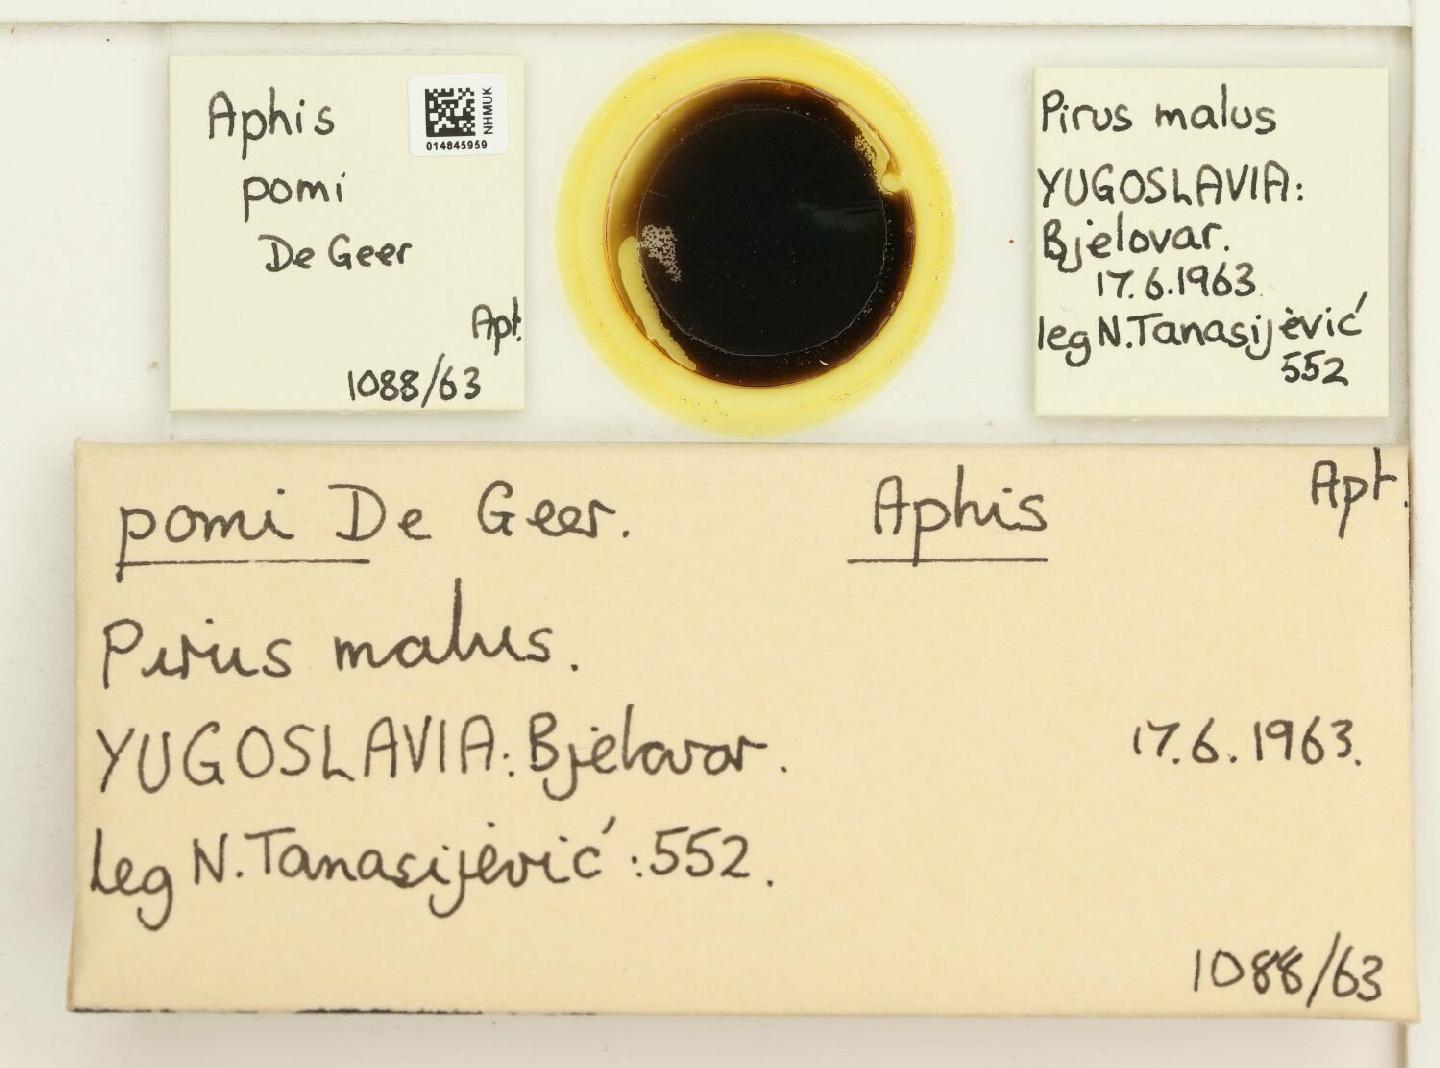 Aphis
pomi
De Geer
Apt.
1088/63
NHMUK
014845959
Pirus malus
YUGOSLAVIA:
Bjelovar.
17.6.1963.
leg N.Tanasijević
552
pomi De Geer. Aphis Apt.
Pirus malus.
YUGOSLAVIA: Bjelovar. 17.6.1963.
leg N.Tanasijević :552.
1088/63